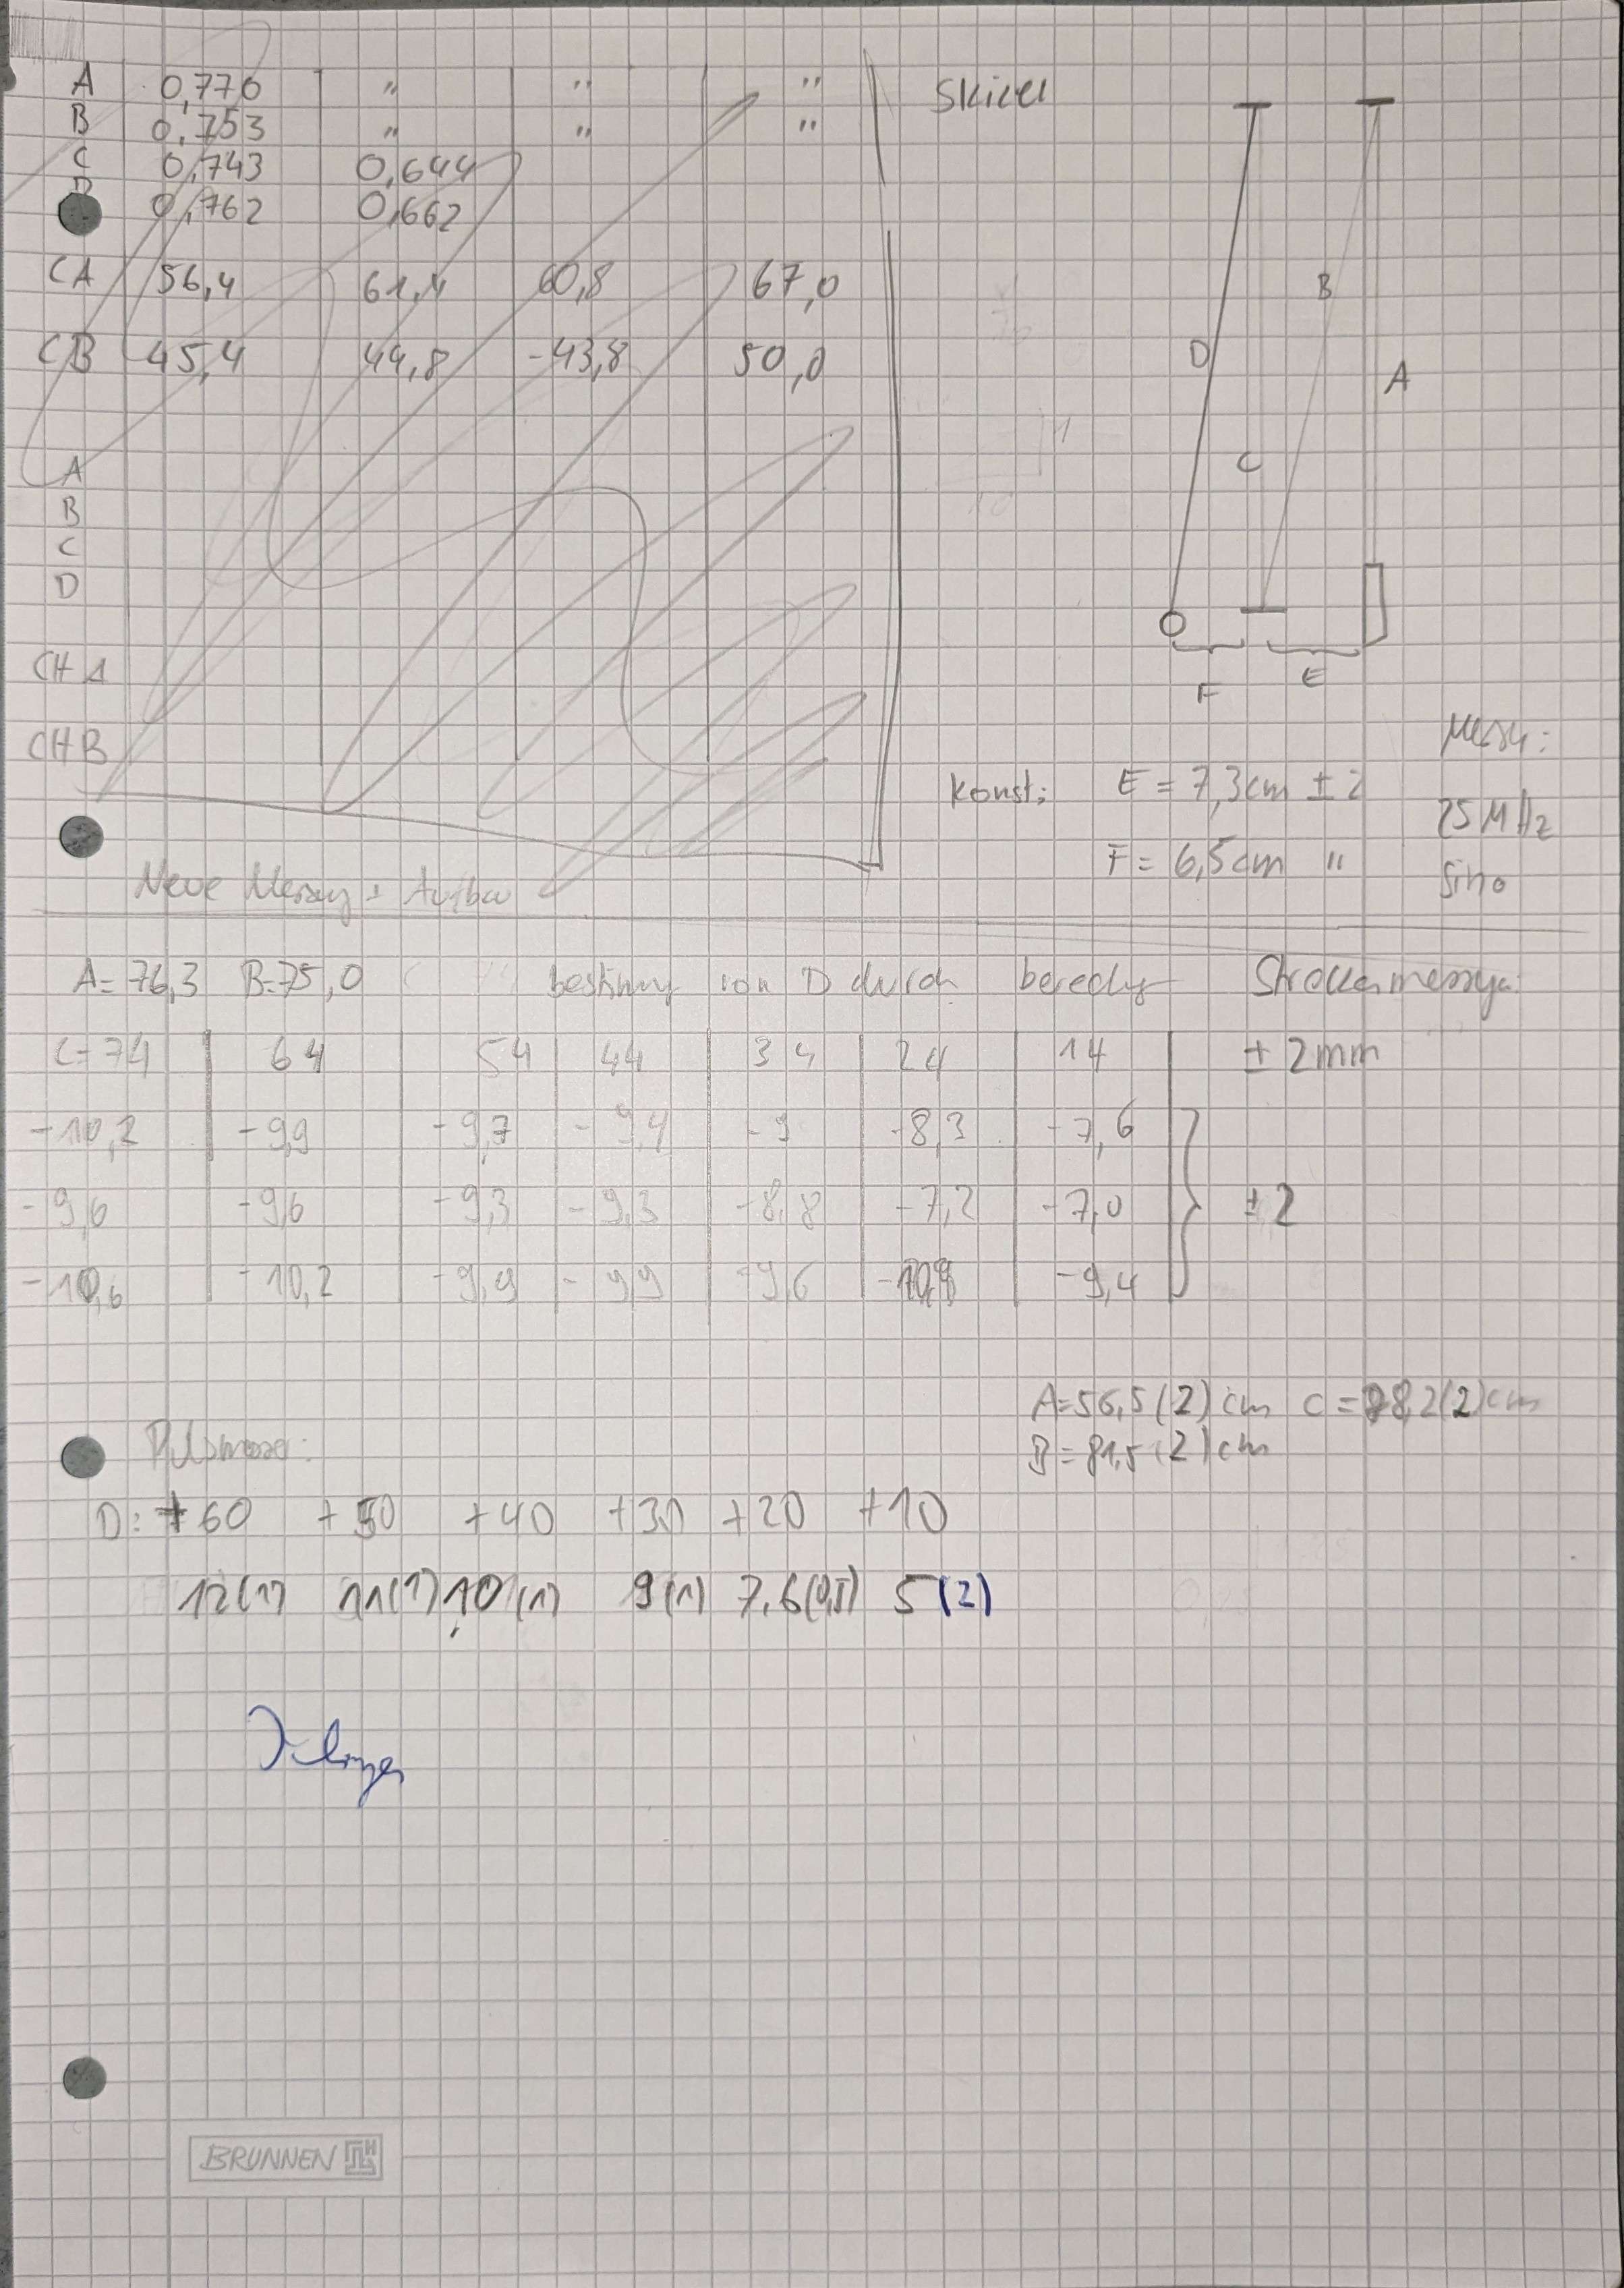 A 0,770 " " "
B 0,753 " " "
C 0,743 0,644
D 0,762 0,662
CA 56,4 61,4 60,8 67,0
CB 45,4 44,8 -43,8 50,0
A
B
C
D
CH A
CH B
Skizze
D C B A
F E
Konst: E = 7,3cm ± 2
F = 6,5cm "
25 MHz
Sino
Neue Messung + Aufbau
A = 76,3 B = 75,0 bestimmung von D durch Streckenmessungen:
C = 74 64 54 44 34 24 14 ± 2mm
-10,2 -9,9 -9,7 -9,4 -9 -8,3 -7,6
-9,6 -9,6 -9,3 -9,3 -8,8 -7,2 -7,0 ± 2
-10,6 -10,2 -9,9 -9,9 -9,6 -9,4
A = 56,5(2) cm C = 8,2(2) cm
B = 81,5(2) cm
D: +60 +50 +40 +30 +20 +10
12(1) 11(1) 10(1) 9(1) 7,6(0,5) 5(2)
BRUNNEN